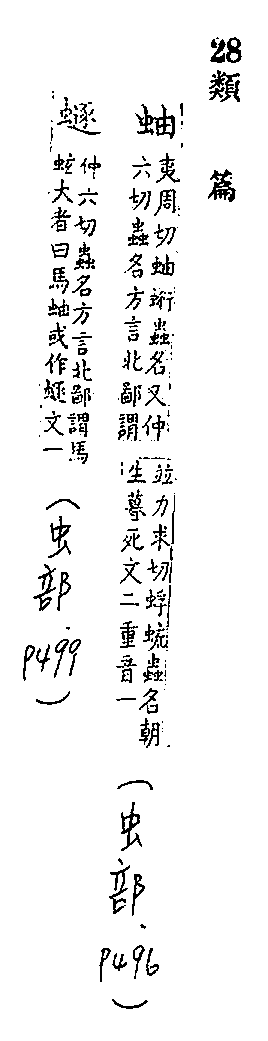 28 類篇
蚰
夷周切蚰衍蟲名又仲
六切蟲名方言北鄙謂
竝力求切蜉蟲名朝
生暮死文二重音一
(虫部. P496)
仲六切蟲名方言北鄙謂馬
蚿大者曰馬蚰或作文一
(虫部. P499)